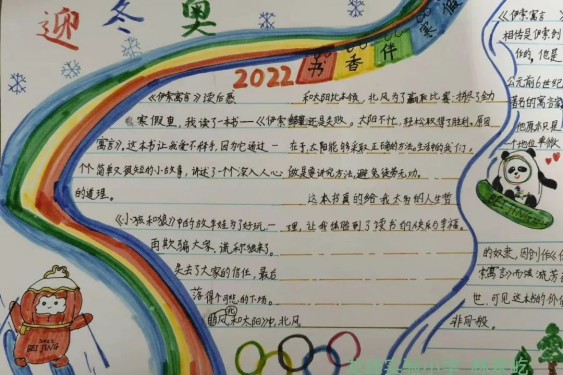 迎冬奥
2022 书香伴寒假
《伊索寓言》读后感
寒假里,我读了一本书——《伊索
寓言》,这本书让我爱不释手,因为它通过一
个个简单又很短的小故事,讲述了一个个深入人心
的道理。
《小孩和狼》中的放羊娃为了好玩一
再欺骗大家,谎称狼来了。
失去了大家的信任,最后
落得个可悲的下场。
风和太阳》中,北风
和太阳比本领,北风为了赢取比赛,拼尽了全力
还是失败。太阳不忙,轻松取得了胜利。原因
在于,太阳能够采取正确的方法。生活中的我们,
做是要讲究方法,避免徒劳无功。
这本书真的给我太多的人生哲
理,让我体验到了读书的快乐和幸福。
《伊索寓言》
相传是伊索创
作的,但是
公元前6世纪
著名的寓言
他原本只是
一个地位卑微
的奴隶,因创作《伊
索寓言》而流芳
世,可见这本书的价值
非同一般。
BEIJING
2022
BEIJING